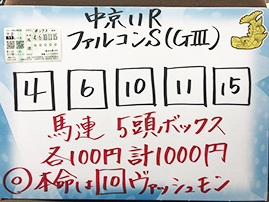 中京11R
ファルコンS(GⅢ)
4 6 10 11 15
馬連 5頭ボックス
各100円 計1000円
◎本命は10ヴァッシュモン